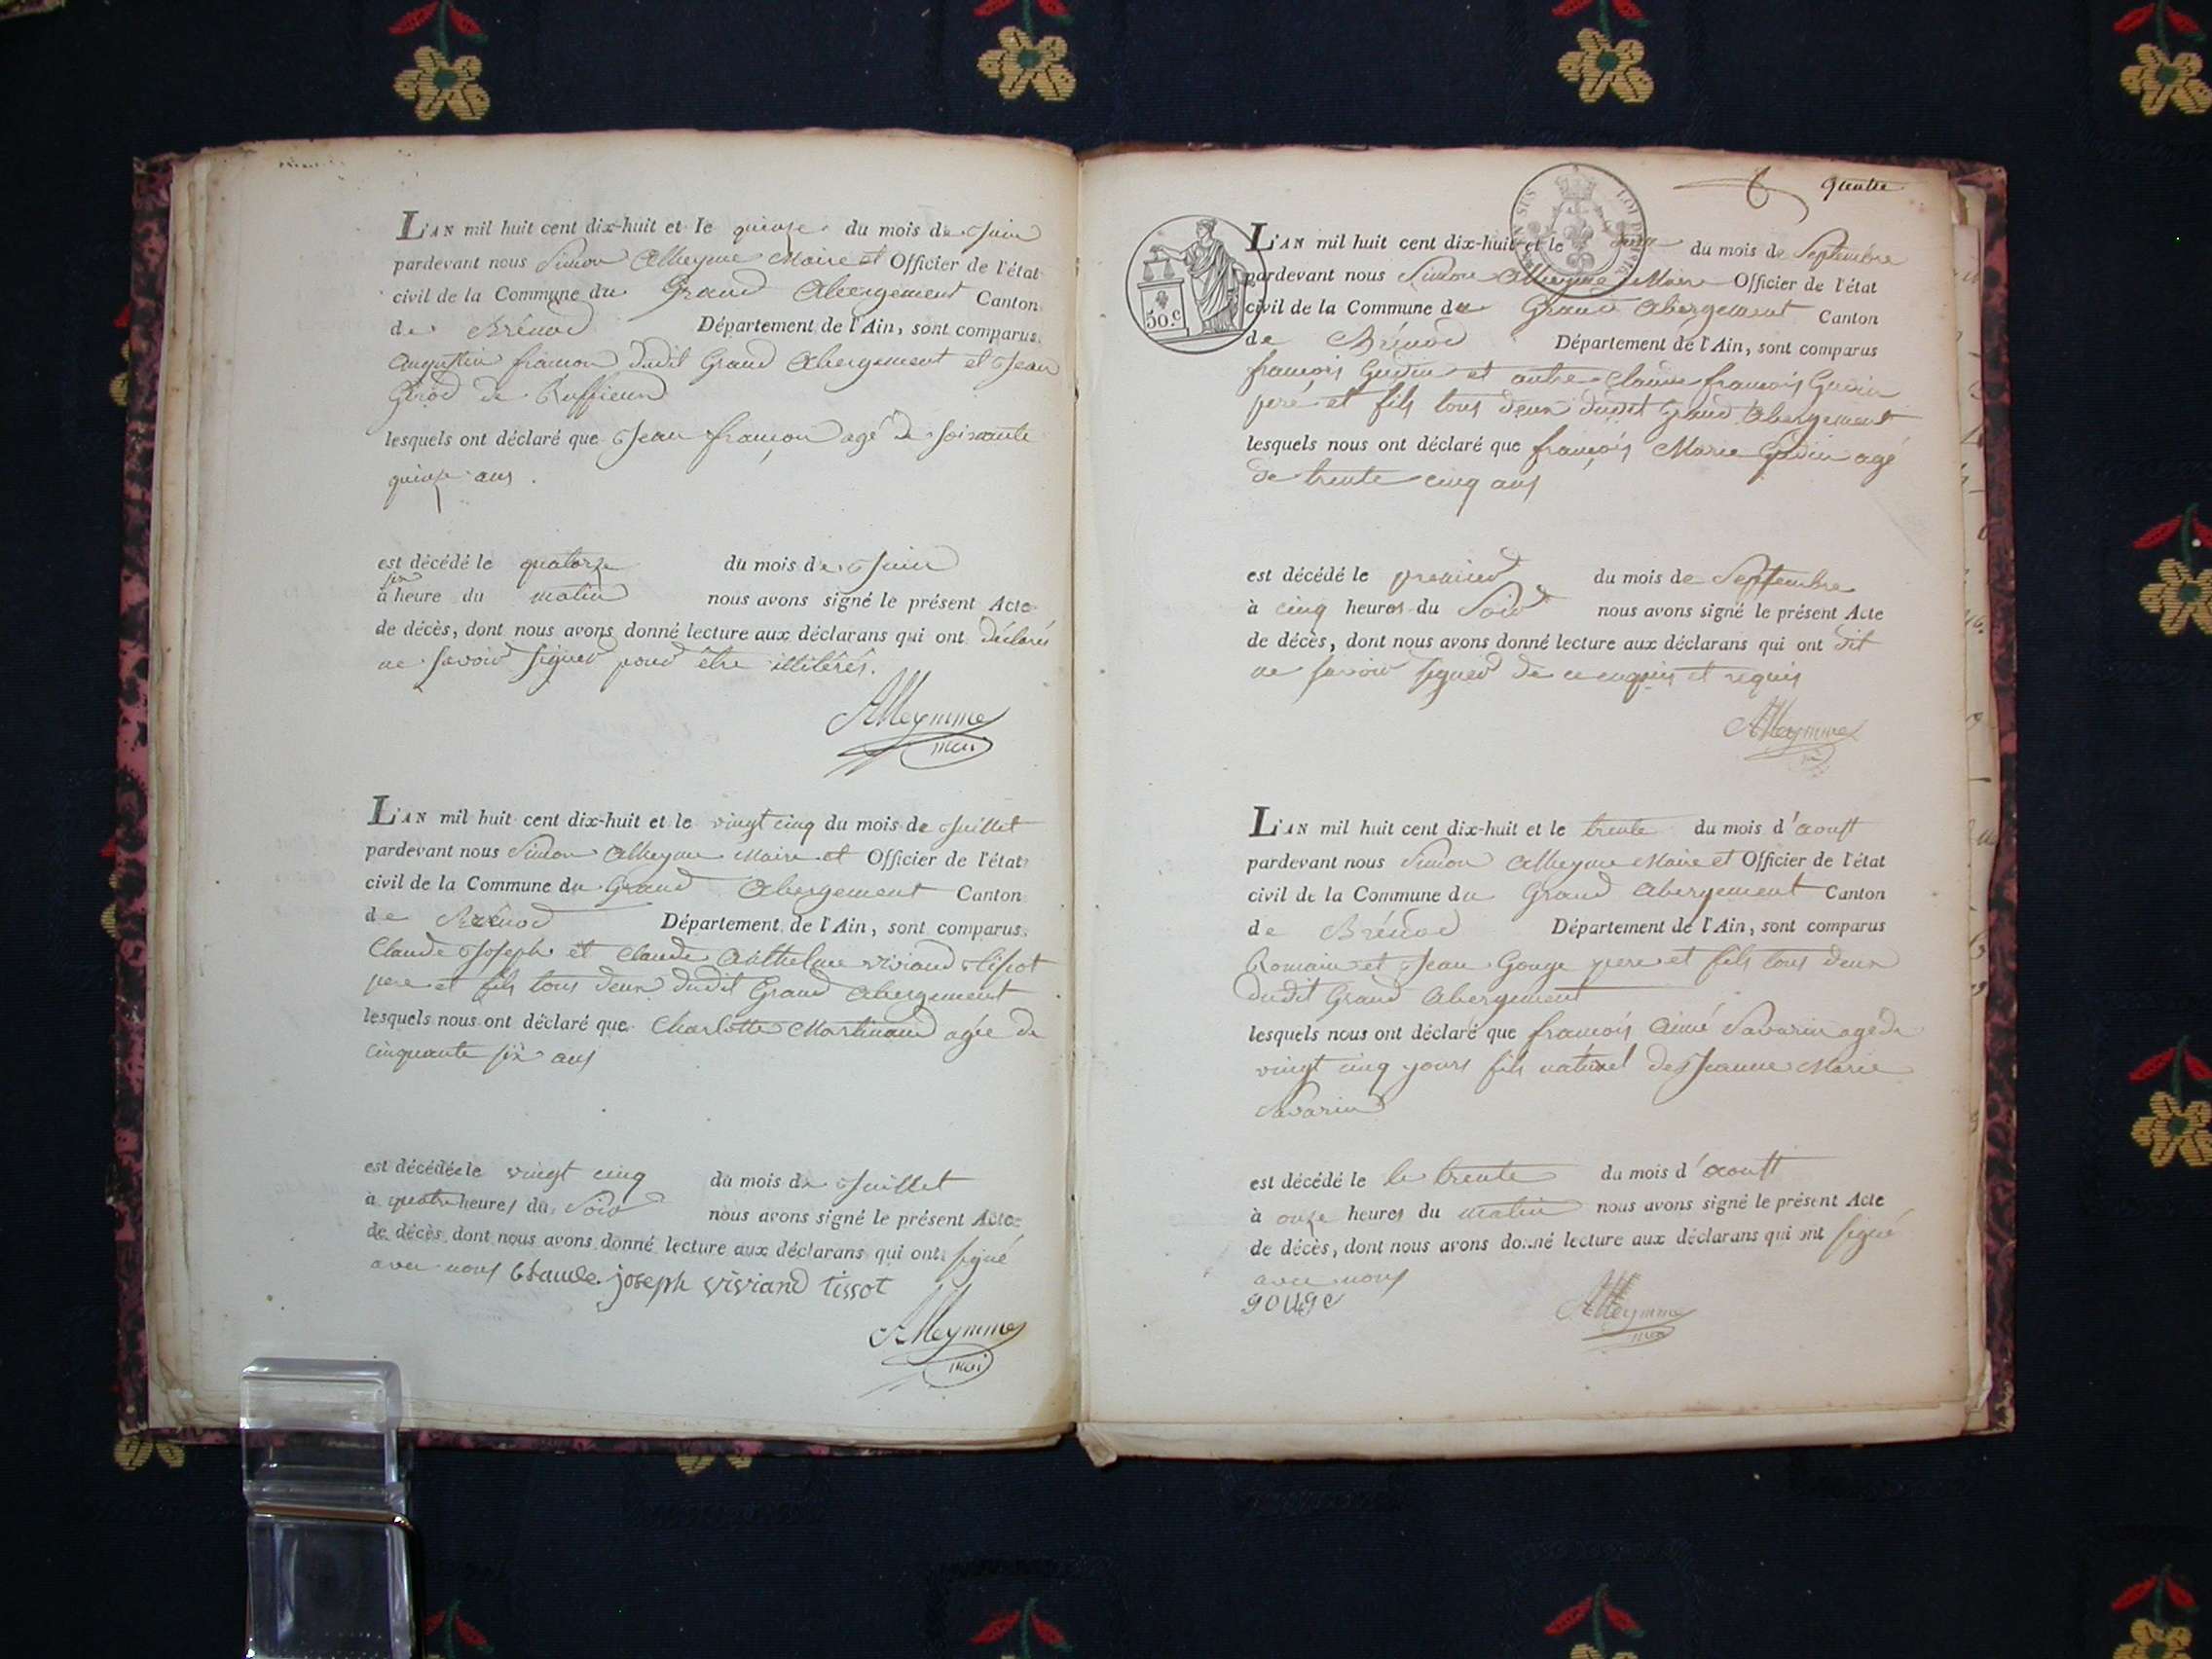 L'AN mil huit cent dix-huit et le quinze du mois de Juin
pardevant nous Simon Alleyme Maire et Officier de l'état
civil de la Commune du Grand Abergement Canton
de Brénod Département de l'Ain, sont comparus
Augustin françon dudit Grand Abergement et Jean
Girod de Ruffieux
lesquels ont déclaré que Jean françon agé de soixante
quinze ans.
est décédé le quatorze du mois de Juin
six
à heure du matin nous avons signé le présent Acte
de décès, dont nous avons donné lecture aux déclarans qui ont déclarés
ne savoir signer pour être illitérés.
AlleymMe
L'AN mil huit cent dix-huit et le vingt cinq du mois de Juillet
pardevant nous Simon Alleyme Maire et Officier de l'état
civil de la Commune du Grand Abergement Canton
de Brénod Département de l'Ain, sont comparus
Claude Joseph et Claude Anthelme Viviand Tissot
pere et fils tous deux dudit Grand Abergement
lesquels nous ont déclaré que Charlotte Martinand agée de
cinquante six ans
est décédée le vingt cinq du mois de Juillet
à quatre heures du Soir nous avons signé le présent Acte
de décès dont nous avons donné lecture aux déclarans qui ont signé
avec nous Claude joseph viviand tissot
Alleymme
quatre
50.c
L'AN mil huit cent dix-huit et le deux du mois de Septembre
pardevant nous Simon Alleyme Maire Officier de l'état
civil de la Commune du Grand Abergement Canton
de Brénod Département de l'Ain, sont comparus
françois Gudin et autre Claude françois Gudin
pere et fils tous deux dudit Grand Abergement
lesquels nous ont déclaré que françois Marie Gudin agé
de trente cinq ans
est décédé le premier du mois de Septembre
à cinq heures du Soir nous avons signé le présent Acte
de décès, dont nous avons donné lecture aux déclarans qui ont dit
ne savoir signer de ce enquis et requis
Alleymme
L'AN mil huit cent dix-huit et le trente du mois d'aoust
pardevant nous Simon Alleyme Maire et Officier de l'état
civil de la Commune du Grand Abergement Canton
de Brénod Département de l'Ain, sont comparus
Romain et Jean Gouge pere et fils tous deux
dudit Grand Abergement
lesquels nous ont déclaré que françois Aimé Savarin agé de
vingt cinq jours fils naturel de Jeanne Marie
Savarin
est décédé le le trente du mois d'aoust
à onze heures du matin nous avons signé le présent Acte
de décès, dont nous avons donné lecture aux déclarans qui ont signé
avec nous
gouge Alleymme